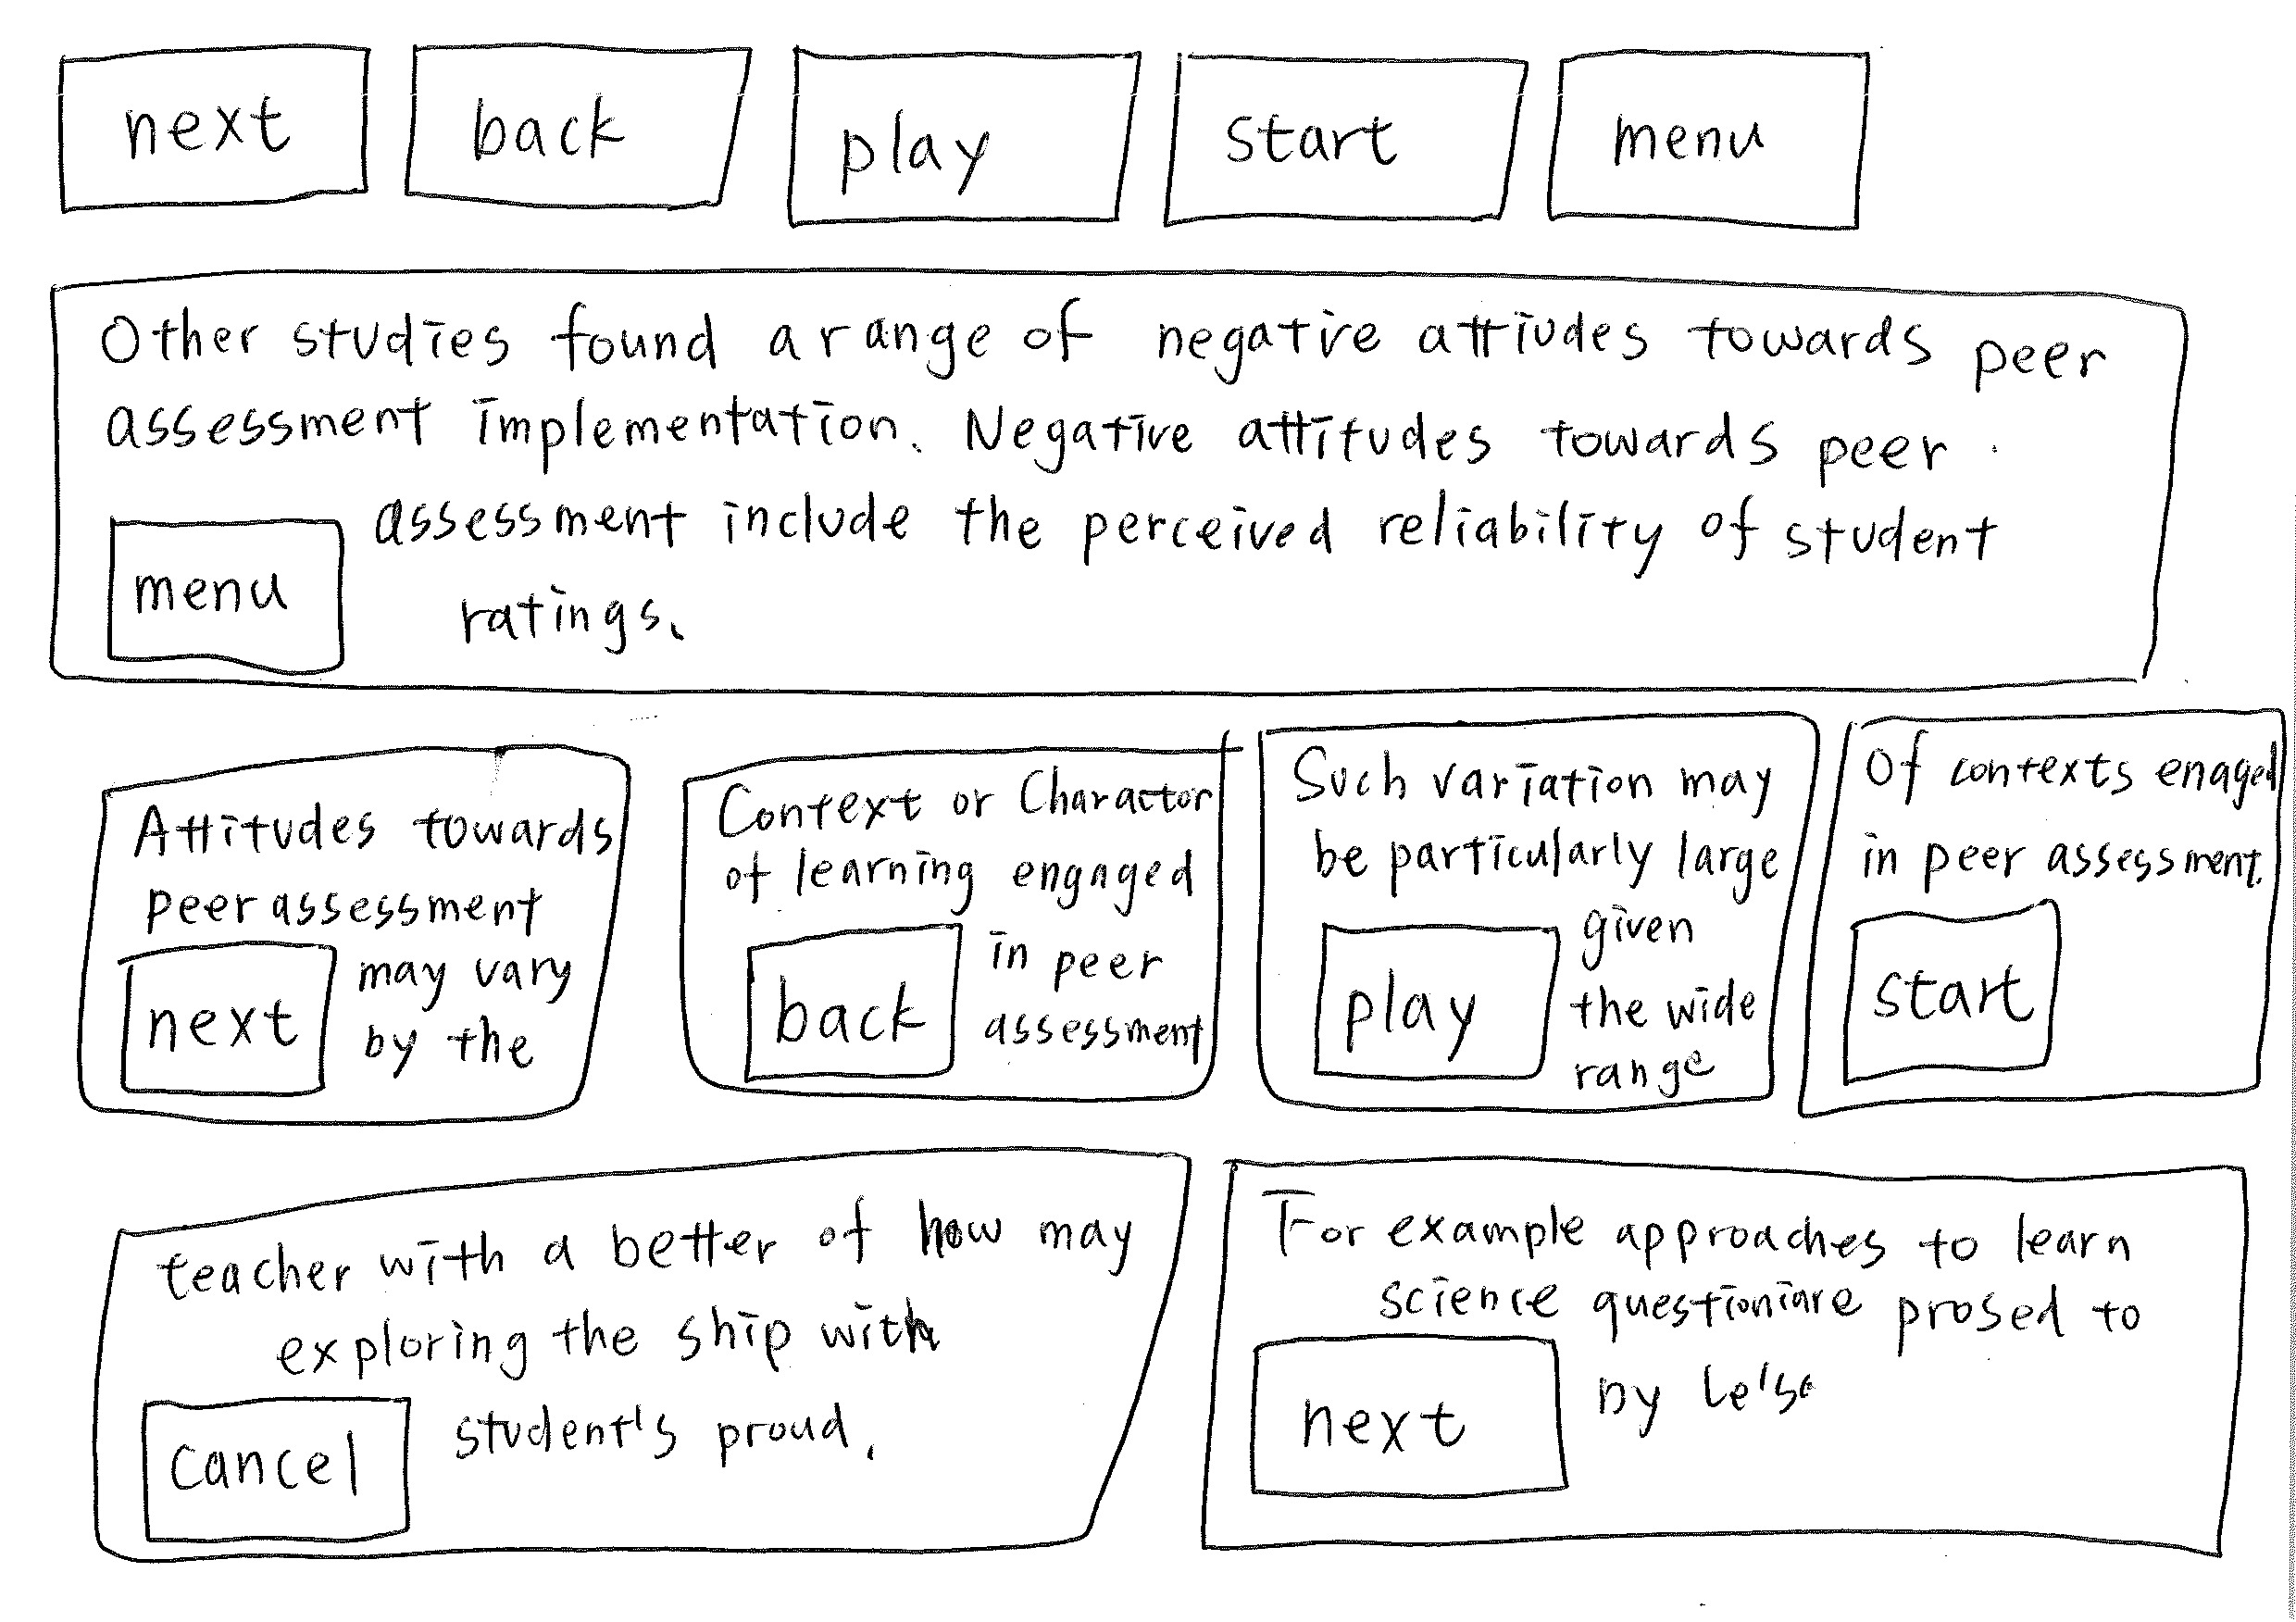 next back play start menu
Other studies found a range of negative attiudes towards peer
assessment implementation. Negative attitudes towards peer
assessment include the perceived reliability of student
ratings.
menu
Attitudes towards
peer assessment
may vary
by the
next
Context or Charactor
of learning engaged
in peer
assessment
back
Such variation may
be particularly large
given
the wide
range
play
Of contexts enaged
in peer assessment.
start
teacher with a better of how may
exploring the ship with
student's proud.
Cancel
For example approaches to learn
science prosed to
next